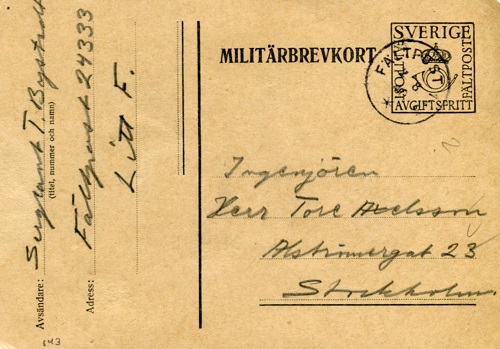 Avsändare: Sergeant T. Byström
(titel, nummer och namn)
Adress: Fältpost 24333
Litt F.
643
MILITÄRBREVKORT
SVERIGE
FÄLTPOST
AVGIFTSFRITT
FÄLTPOST
Ingenjören
Herr Tore Axelsson
Alströmergat 23
Stockholm